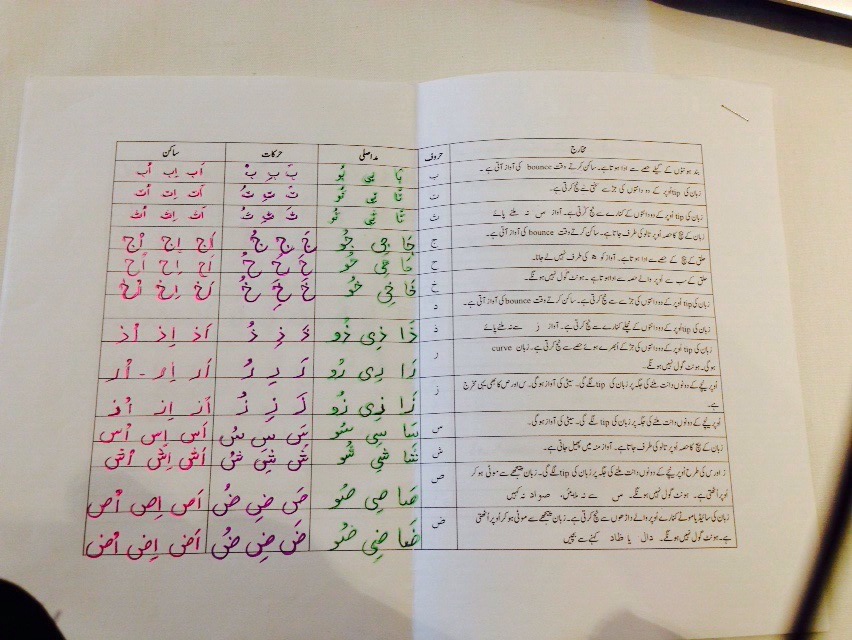 مخارج حروف مد اصلی حرکات ساکن
بند ہونٹوں کے گیلے حصے سے ادا ہوتا ہے۔ ساکن کرتے وقت bounce کی آواز آتی ہے۔ ب بَا بِی بُو بَ بِ بُ اَب اِب اُب
زبان کی tip اُوپر کے دو دانتوں کی جڑ سے سختی سے ٹچ کرتی ہے۔ ت تَا تِی تُو تَ تِ تُ اَت اِت اُت
زبان کی tip اُوپر کے دو دانتوں کے کنارے سے ٹچ کرتی ہے۔ آواز س نہ ملنے پائے ث ثَا ثِی ثُو ثَ ثِ ثُ اَث اِث اُث
زبان کے بیچ کا حصہ اُوپر تالو کی طرف جاتا ہے۔ ساکن کرتے وقت bounce کی آواز آتی ہے۔ ج جَا جِی جُو جَ جِ جُ اَج اِج اُج
حلق کے بیچ کے حصے سے ادا ہوتا ہے۔ آواز کو ھ کی طرف نہیں لے جانا۔ ح حَا حِی حُو حَ حِ حُ اَح اِح اُح
حلق کے سب سے اُوپر والے حصہ سے ادا ہوتا ہے۔ ہونٹ گول نہیں ہونگے۔ خ خَا خِی خُو خَ خِ خُ اَخ اِخ اُخ
زبان کی tip اُوپر کے دو دانتوں کی جڑ سے ٹچ کرتی ہے۔ ساکن کرتے وقت bounce کی آواز آتی ہے۔ د
زبان کی tip اُوپر کے دو دانتوں کے نچلے کنارے سے ٹچ کرتی ہے۔ آواز ز سے نہ ملنے پائے ذ ذَا ذِی ذُو ذَ ذِ ذُ اَذ اِذ اُذ
زبان کی tip اُوپر کے دو دانتوں کی جڑ کے اُبھرے ہوئے حصے سے ٹچ کرتی ہے۔ زبان curve
ہوگی۔ ہونٹ گول نہیں ہونگے۔ ر رَا رِی رُو رَ رِ رُ اَر اِر اُر
اُوپر نیچے کے دونوں دانت ملنے کی جگہ پر زبان کی tip لگے گی۔ سیٹی کی آواز ہوگی۔ س اور ص کا بھی یہی مخرج
ہے۔ ز زَا زِی زُو زَ زِ زُ اَز اِز اُز
اُوپر نیچے کے دونوں دانت ملنے کی جگہ پر زبان کی tip لگے گی۔ سیٹی کی آواز ہوگی۔ س سَا سِی سُو سَ سِ سُ اَس اِس اُس
زبان کے بیچ کا حصہ اُوپر تالو کی طرف جاتا ہے۔ آواز منہ میں پھیل جاتی ہے۔ ش شَا شِی شُو شَ شِ شُ اَش اِش اُش
ز اور س کی طرح اُوپر نیچے کے دونوں دانت ملنے کی جگہ پر زبان کی tip لگے گی۔ زبان پیچھے سے موٹی ہو کر
اُوپر اُٹھتی ہے۔ ہونٹ گول نہیں ہونگے۔ س سے نہ ملائیں، صواد نہ کہیں ص صَا صِی صُو صَ صِ صُ اَص اِص اُص
زبان کی سائیڈ یا موٹے کنارے اُوپر والے داڑھوں سے ٹچ کرتی ہے۔ زبان پیچھے سے موٹی ہو کر اُوپر اُٹھتی
ہے۔ ہونٹ گول نہیں ہونگے۔ دال یا ظاد کہنے سے بچیں ض ضَا ضِی ضُو ضَ ضِ ضُ اَض اِض اُض